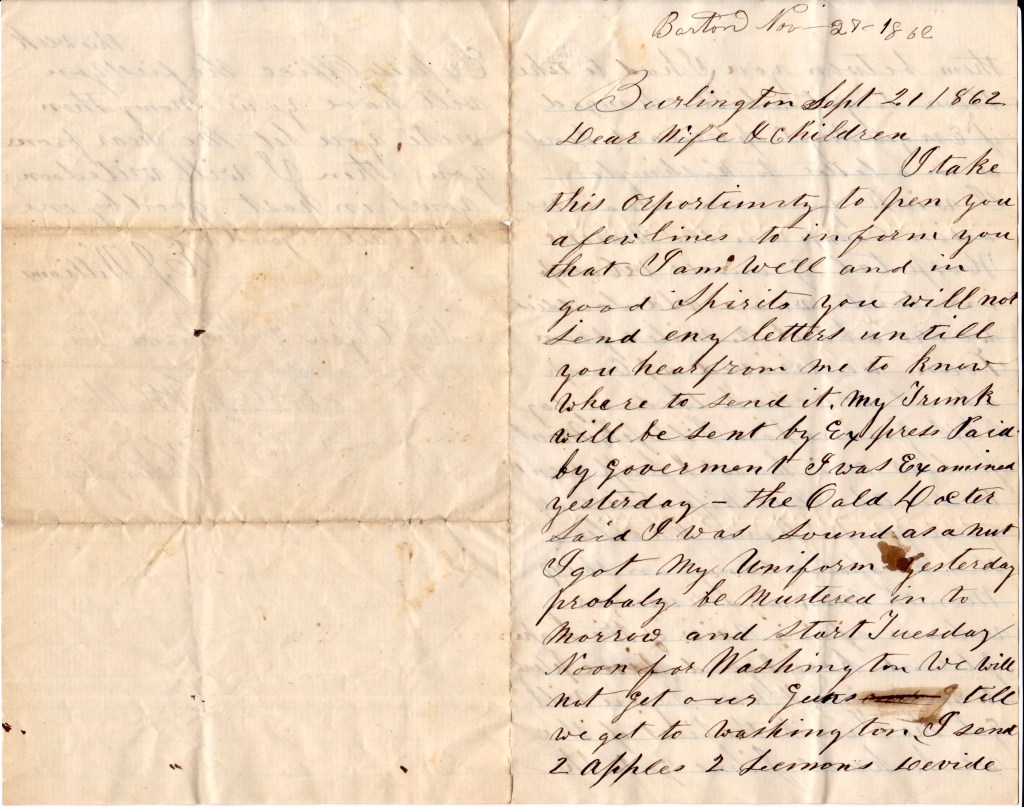 Barton Nov 27 - 1862
Burlington Sept 21 1862
Dear Wife & Children
I take
this opportunity to pen you
a few lines to inform you
that I am well and in
good Spirits you will not
send eny letters untill
you hear from me to know
where to send it. My Trunk
will be sent by Express Paid
by Goverment I was Examined
yesterday - the Oald Docter
Said I was Sound as a nut
I got My Uniform yesterday
probaly be Mustered in to
Morrow and Start Tuesday
Noon for Washington We will
not get our Guns till
we get to Washington, I send
2 Apples 2 Lemons Devide